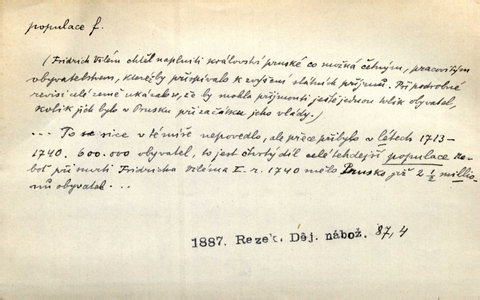 populace f.
(Fridrich Vilém chtěl naplniti království pruské co možná četným, pracovitým
obyvatelstvem, kteréžby přispívalo k zvýšení státních příjmů. Při podrobné
revisi celé země ukázalo se, že by mohla přijmouti ještě jednou tolik obyvatel,
kolik jich bylo v Prusku při začátku jeho vlády.)
... To se sice v té míře nepovedlo, ale přece přibylo v létech 1713–
1740. 600.000 obyvatel, to jest čtvrtý díl celé tehdejší populace ne-
boť při smrti Fridricha Viléma I. r. 1740 mělo Prusko již 2 1/2 millio-
nů obyvatel ...
1887. Rezek. Děj. nábož. 87,4